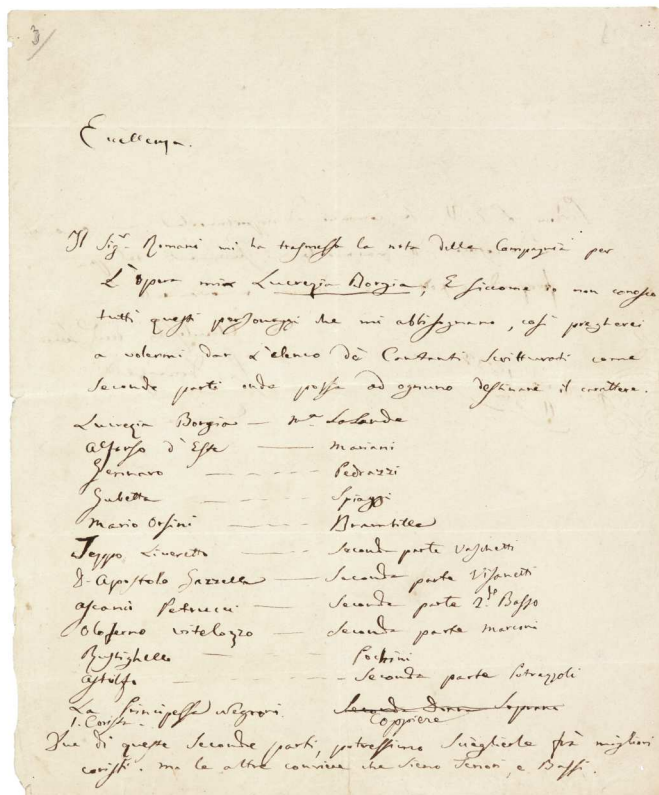 3/
Eccellenza.
Il Sigr. Romani mi ha trasmesso la nota della Compagnia per
L'Opera mia Lucrezia Borgia, E siccome io non conosco
tutti questi personaggi che mi abbisognano, così pregherei
a volermi dar L'elenco dè Cantanti Scritturati come
Seconde parti onde possa ad ognuno destinare il carattere.
Lucrezia Borgia — Ma. LaLande
Alfonso d'Este — Mariani
Gennaro — Pedrazzi
Gubetta — Spiaggi
Mario Orsini — Brambilla
Jeppo Liveretto — Seconda parte Vaschetti
D. Apostolo Gazzella — Seconda parte Visanetti
Ascanio Petrucci — Seconda parte 2do. Basso
Oloferno Vitelozzo — Seconda parte Marconi
Rustighello — Pochini
Astolfo — Seconda parte Petrazzoli
La Principessa Negroni. Seconda Donna Soprano
1. Corista. Coppiere
Due di queste Seconde parti, potressimo Sciegliele frà migliori
coristi. ma le altre conviene che sieno Tenori, e Bassi.